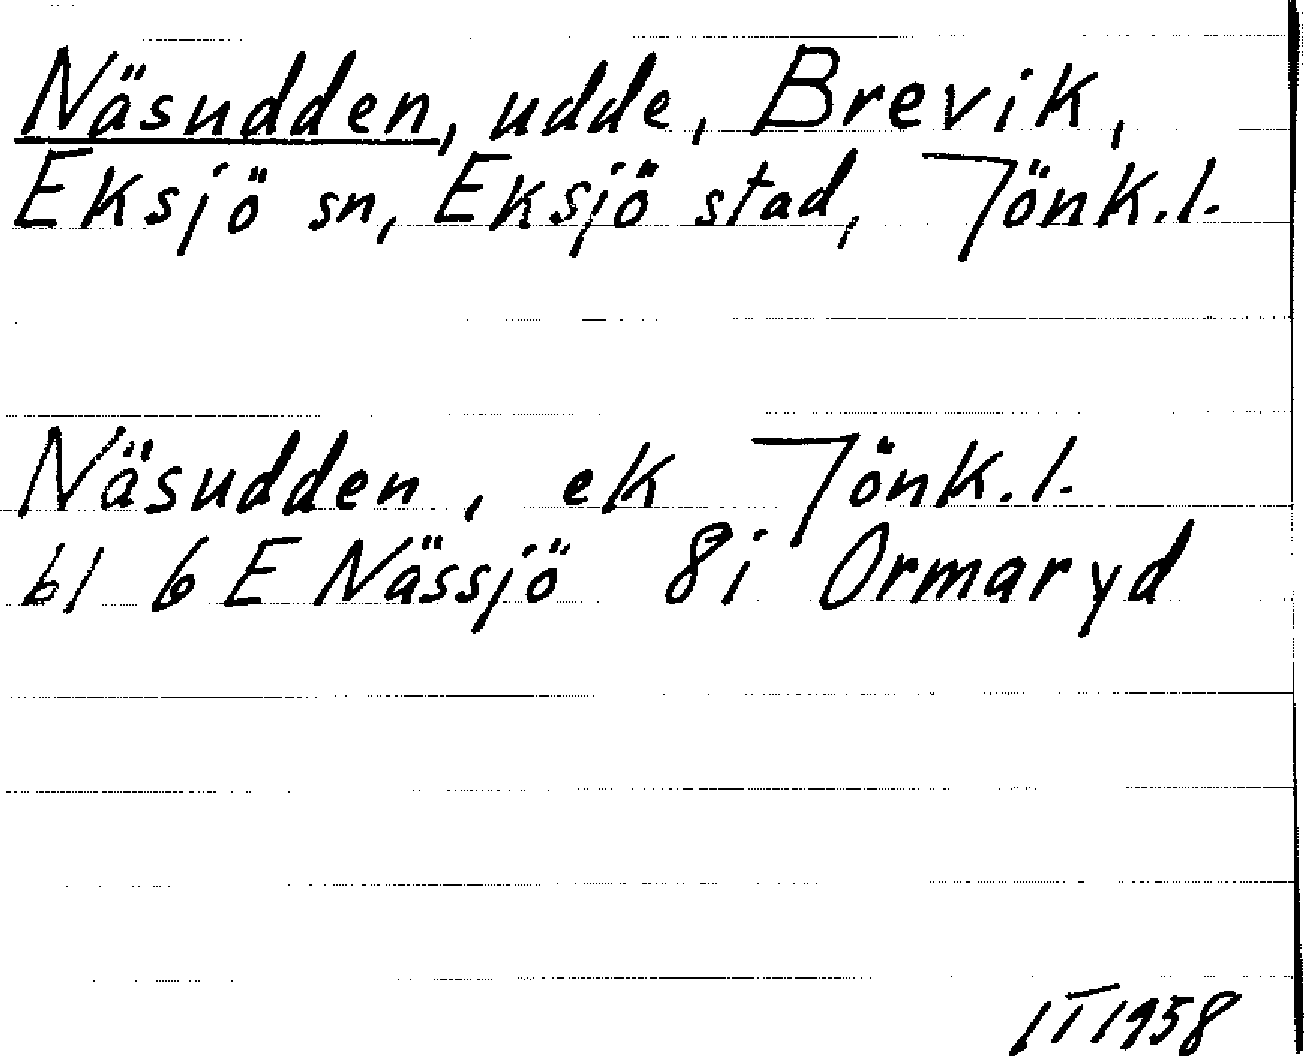 Näsudden, udde, Brevik,
Eksjö sn, Eksjö stad, Jönk.l.
Näsudden, ek Jönk.l.
bl 6 E Nässjö 8i Ormaryd
1958